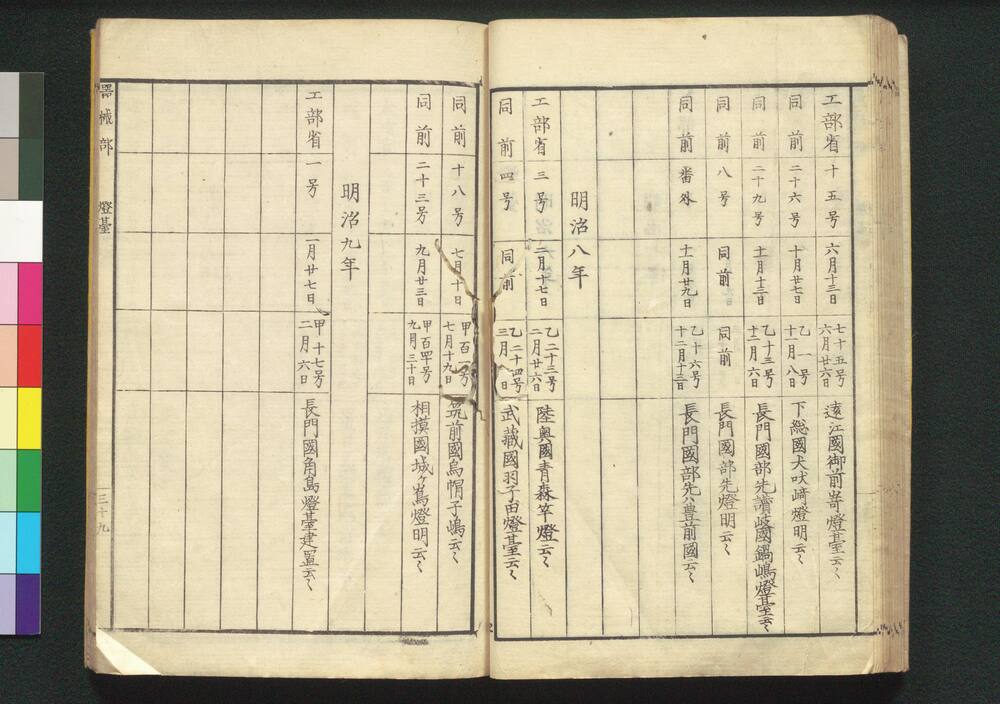 工部省 十五号 六月十三日 七十五号 六月廿六日 遠江國御前嵜燈臺云〻
同前 二十六号 十月廿七日 乙一号 十一月八日 下総國犬吠﨑燈明云〻
同前 二十九号 十一月十三日 乙十三号 十二月六日 長門國部先讃岐國鍋嶋燈臺云〻
同前 八号 同前 同前 長門國部先燈明云〻
同前 番外 十一月廿九日 乙十六号 十二月十三日 長門國部先ハ豊前國云〻
明治八年
工部省 三号 二月十七日 乙二十三号 二月廿六日 陸奥國青森竿燈云〻
同前 四号 同前 乙二十四号 三月 日 武蔵國羽子田燈臺云〻
同前 十八号 七月十日 甲百一号 七月十九日 筑前國烏帽子嶋云〻
同前 二十三号 九月廿三日 甲百四号 九月三十日 相摸國城ヶ嶌燈明云〻
明治九年
工部省 一号 一月廿七日 甲十七号 二月六日 長門國角島燈臺建置云〻
器械部 燈臺 三十九